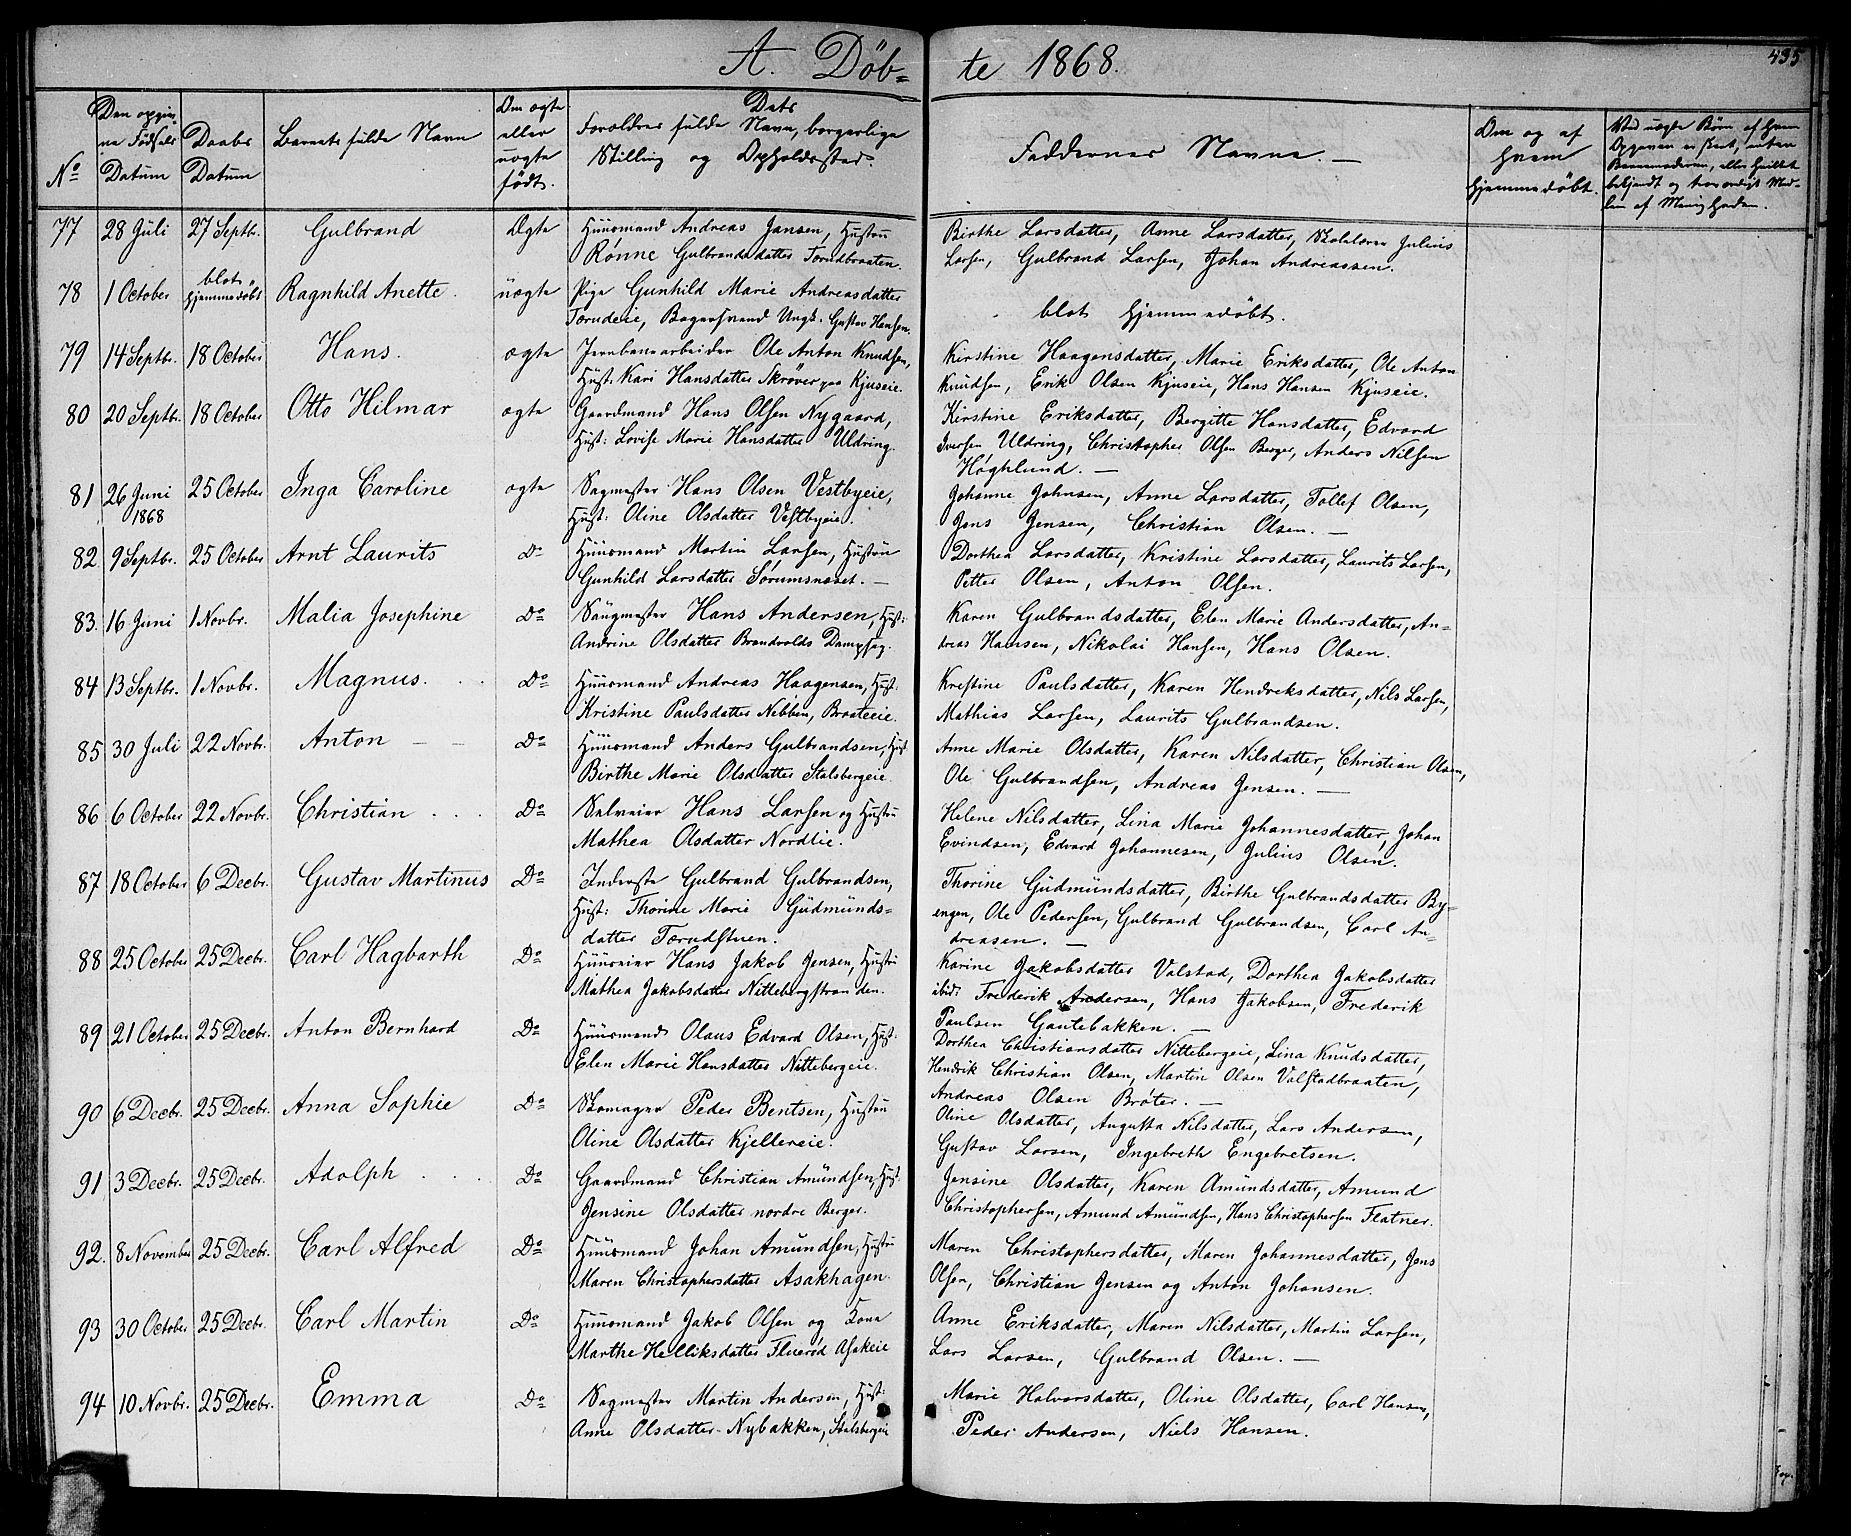 A. Døb= te 1868.
435
No
Den opgiv=
ne Fødsels
Datum
Daabs
Datum
Barnets fulde Navn
Om ægte
eller
uægte
født.
Forældres fulde Navn, borgerlige
Stilling og Opholdssted.
Faddernes Navne.
Om og af
hvem
hjemmedøbt.
77 28 Juli 27 Septbr. Gulbrand Ægte Huusmand Andreas Jansen, Hustru
Rønne Gulbrandsdatter Torudbraaten.
Birthe Larsdatter, Anne Larsdatter, Skolelærer Julius
Larsen, Gulbrand Larsen, Johan Andreassen.
78 1 October blot hjemmedøbt Ragnhild Anette. uægte Pige Gunhild Marie Andreasdatter
Torudeie, Ungk. Gustav Hansen.
blot hjemmedøbt.
79 14 Septbr. 18 October Hans. ægte Jernbanearbeider Ole Anton Knudsen,
Hust: Kari Hansdatter Skrøver paa Kjuseie.
Kirstine Haagensdatter, Marie Eriksdatter, Ole Anton
Knudsen, Erik Olsen Kjuseie, Hans Hansen Kjuseie.
80 20 Septbr. 18 October Otto Hilmar ægte Gaardmand Hans Olsen Nygaard,
Hust: Lovise Marie Hansdatter Uldring.
Kirstine Eriksdatter, Bergitte Hansdatter, Edvard
Iversen Uldring, Christopher Olsen Berger, Anders Nilsen
Høghlund. —
81 26 Juni 25 October Inga Caroline ægte Sagmester Hans Olsen Vestbyeie,
1868
Hust: Oline Olsdatter Vestbyeie.
Johanne Johnsen, Anne Larsdatter, Tollef Olsen,
Jens Jensen, Christian Olsen. —
82. 9 Septbr. 25 October Arnt Laurits Do Huusmand Martin Larsen, Hustru
Gunhild Larsdatter Sørumsnæset. —
Dorthea Larsdatter, Kristine Larsdatter, Laurits Larsen,
Petter Olsen, Anton Olsen.
83. 16 Juni 1 Novbr. Malia Josephine Do Saugmester Hans Andersen, Hust:
Andrine Olsdatter Brandvolds Dampsag.
Karen Gulbrandsdatter, Elen Marie Andersdatter, An=
dreas Hansen, Nikolai Hansen, Hans Olsen.
84 13 Septbr. 1 Novbr. Magnus. Do Huusmand Andreas Haagensen, Hust:
Kristine Paulsdatter Nebben, Braateeie.
Krestine Paulsdatter, Karen Hendreksdatter, Nils Larsen,
Mathias Larsen, Laurits Gulbrandsen.
85 30 Juli 22 Novbr. Anton Do Huusmand Anders Gulbrandsen, Hust
Birthe Marie Olsdatter Stalsbergeie
Anne Marie Olsdatter, Karen Nilsdatter, Christian Olsen,
Ole Gulbrandsen, Andreas Jensen. —
86 6 October 22 Novbr. Christian Do Selveier Hans Larsen og Hustru
Mathea Olsdatter Nordlie.
Helene Nilsdatter, Lina Marie Johannesdatter, Johan
Evindsen, Edvard Johannesen, Julius Olsen.
87 18 October 6 Decbr. Gustav Martinus Do Inderste Gulbrand Gulbrandsen,
Hust: Thorine Marie Gudmunds=
datter Torudstuen.
Thorine Gudmundsdatter, Birthe Gulbrandsdatter By=
engen, Ole Pedersen, Gulbrand Gulbrandsen, Carl An=
dreasen. —
88 25 October 25 Decbr. Carl Hagbarth Do Huuseier Hans Jakob Jensen, Hustru
Mathea Jakobsdatter Nittebergstranden.
Karine Jakobsdatter Valstad, Dorthea Jakobsdatter
ibid: Frederik Andersen, Hans Jakobsen, Frederik
Paulsen Gautebakken. —
89 21 October 25 Decbr. Anton Bernhard Do Huusmand Olaus Edvard Olsen, Hust:
Elen Marie Hansdatter Nittebergeie.
Dorthea Christiansdatter Nittebergeie, Lina Knudsdatter,
Hendrik Christian Olsen, Martin Olsen Valstadbraaten,
Andreas Olsen Brøter. —
90 6 Decbr. 25 Decbr. Anna Sophie Do Skomager Peder Bentsen, Hustru
Oline Olsdatter Kjellereie.
Oline Olsdatter, Augusta Nilsdatter, Lars Andersen,
Gustav Larsen, Ingebreth Engebretsen.
91 3 Decbr. 25 Decbr. Adolph Do Gaardmand Christian Amundsen, Hust.
Jensine Olsdatter nordre Berger.
Jensine Olsdatter, Karen Amundsdatter, Amund
Christophersen, Amund Amundsen, Hans Christophersen Flatner.
92. 8 November 25 Decbr. Carl Alfred Do Huusmand Johan Amundsen, Hustru
Maren Christophersdatter Asakhagen.
Maren Christophersdatter, Maren Johannesdatter, Jens
Olsen, Christian Jensen og Anton Johansen.
93 30 October 25 Decbr. Carl Martin Do Huusmand Jakob Olsen og Kone
Marthe Helliksdatter Fluerød Asakeie
Anne Eriksdatter, Maren Nilsdatter, Martin Larsen,
Lars Larsen, Gulbrand Olsen. —
94 10 Novbr. 25 Decbr. Emma Do Sagmester Martin Andersen, Hust:
Anne Olsdatter Nybakken, Stalsbergeie
Marie Halvorsdatter, Oline Olsdatter, Carl Hansen,
Peder Andersen, Niels Hansen.